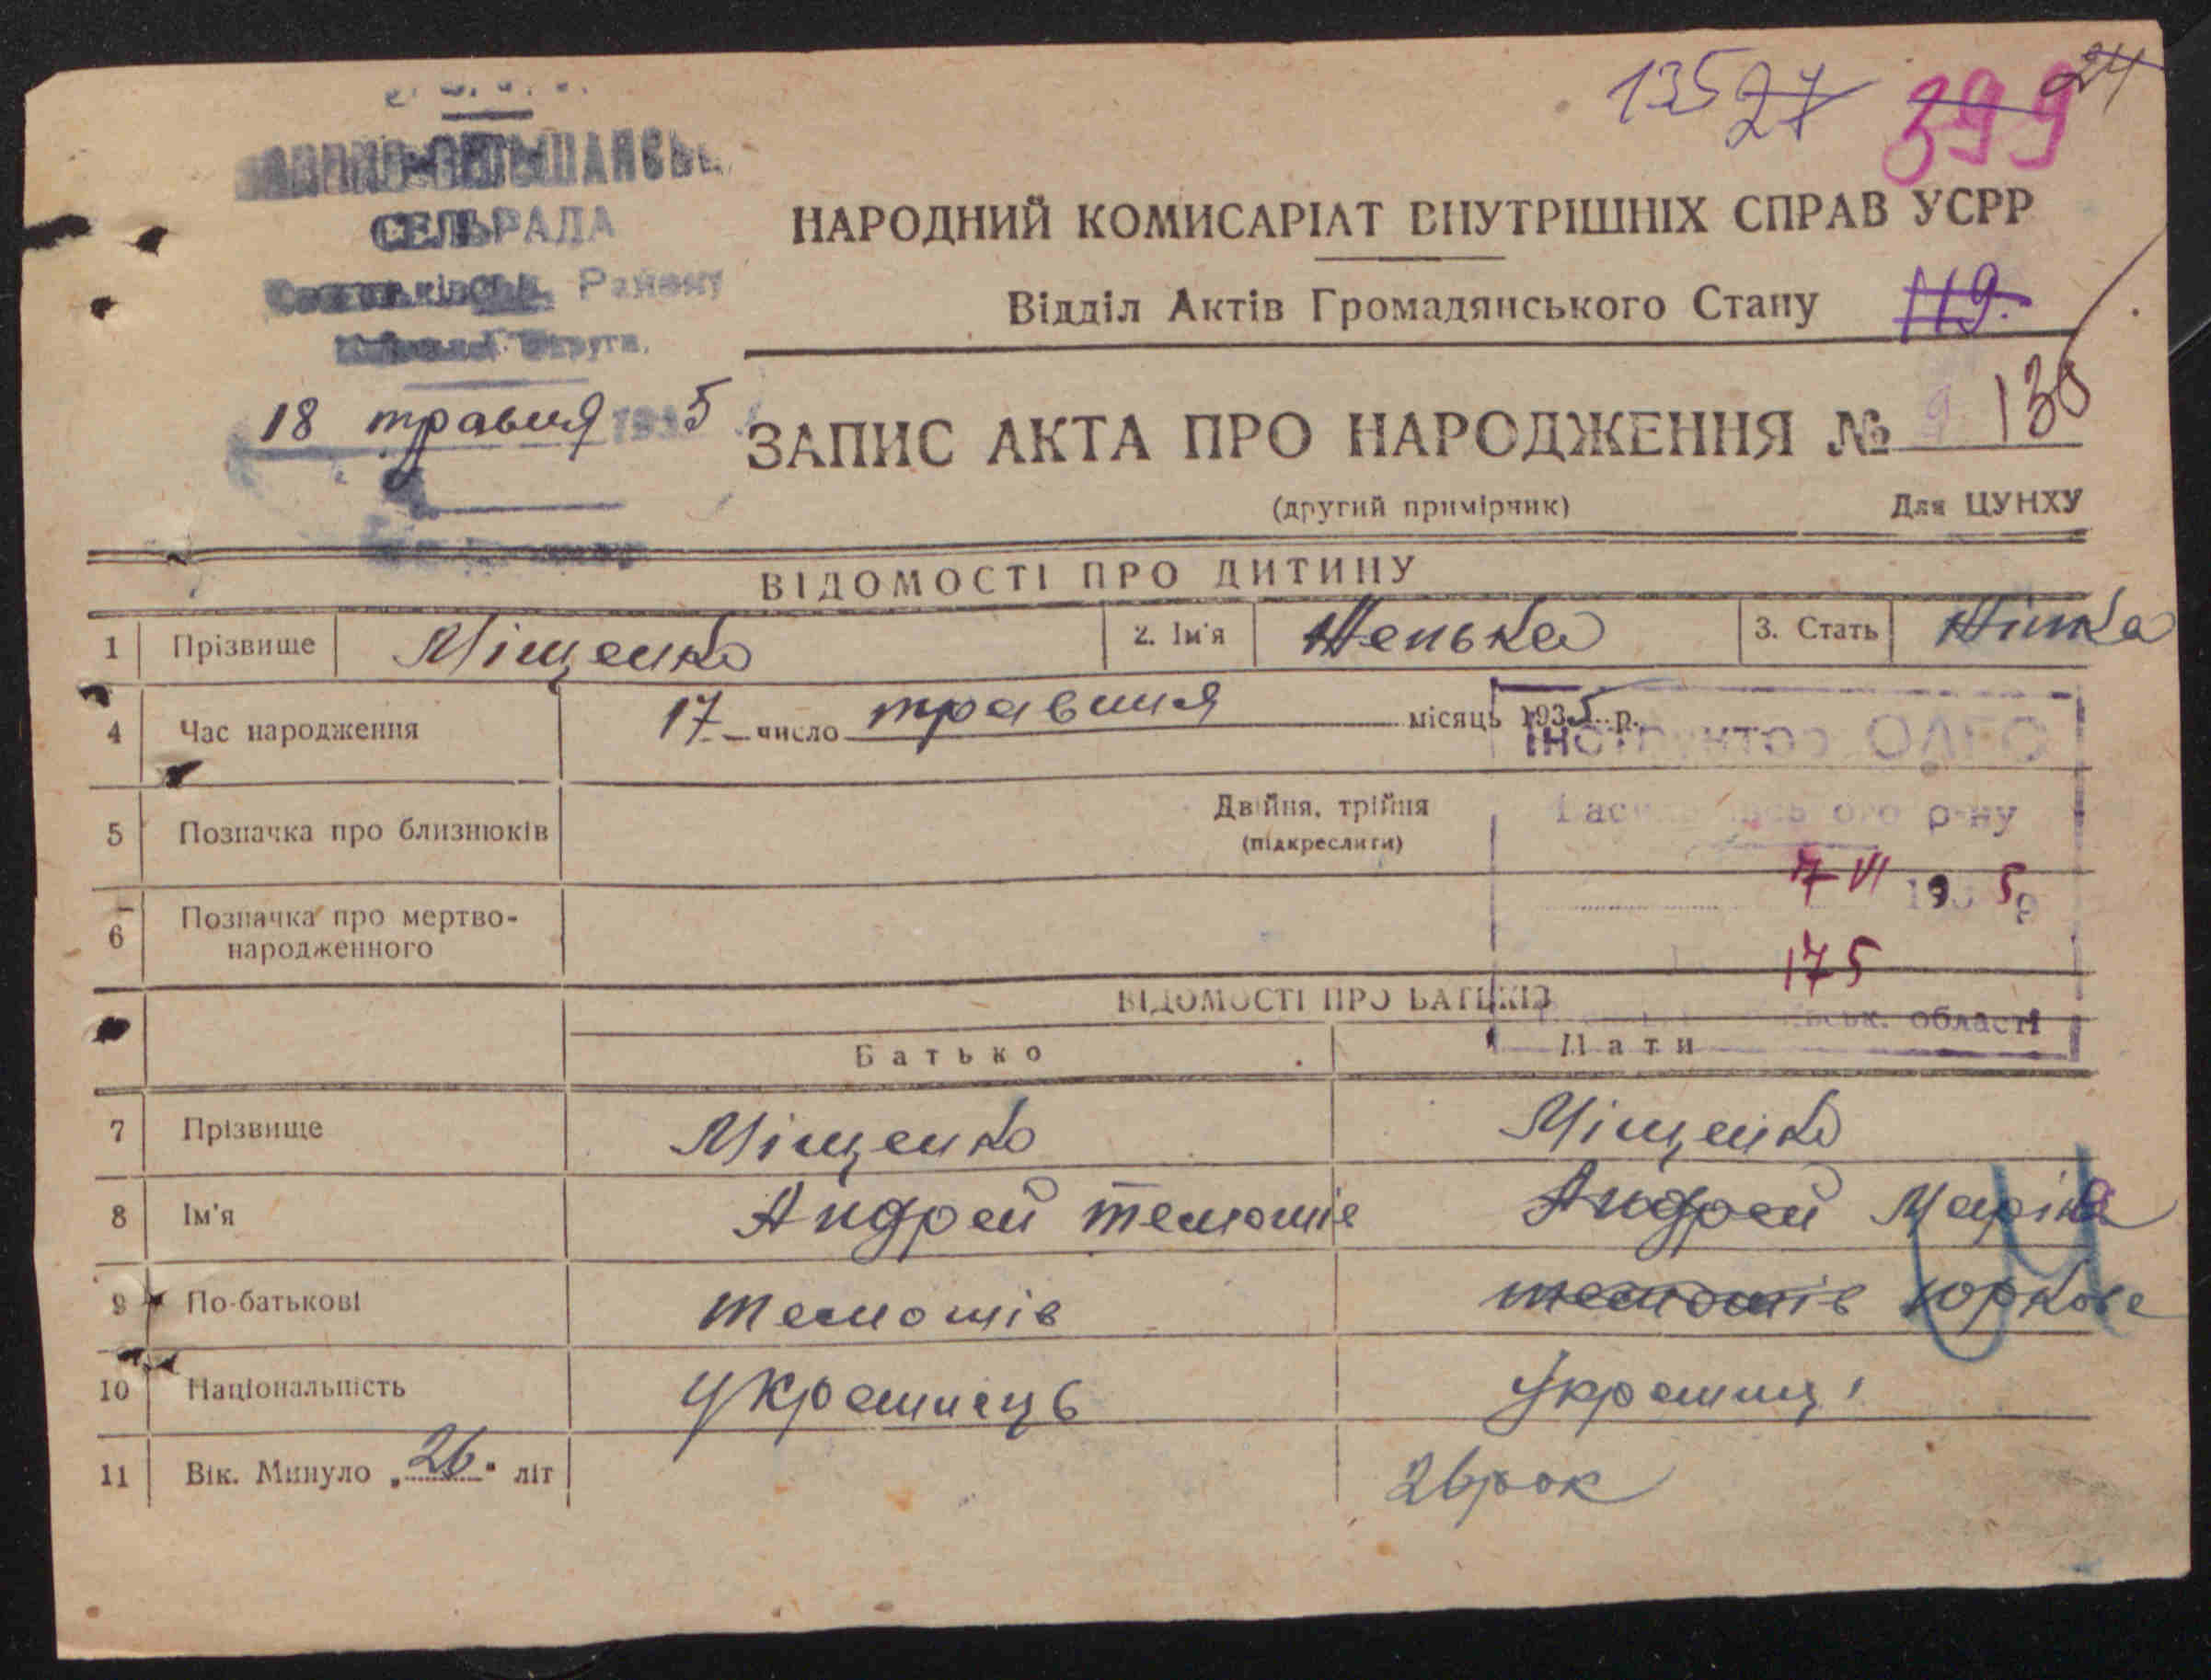 1352
27
399
24
СЕЛЬРАДА
Району
18 травня 1935
НАРОДНИЙ КОМИСАРІАТ ВНУТРІШНІХ СПРАВ УСРР
Відділ Актів Громадянського Стану
119.
ЗАПИС АКТА ПРО НАРОДЖЕННЯ № 138
(другий примірник) Для ЦУНХУ
ВІДОМОСТІ ПРО ДИТИНУ
1 Прізвище Міщенко 2. Ім'я 3. Стать
4 Час народження 17 число травня місяць 1935 р.
Інструктор
5 Позначка про близнюків Двійня, трійня
(підкреслити)
р-ну
7 VI 1935 р
6 Позначка про мертво-
народженного
175
ВІДОМОСТІ ПРО БАТЬКІВ
області
Батько Мати
7 Прізвище Міщенко Міщенко
8 Ім'я Андрей темошів Андрей Маріна
9 По-батькові темошів темошів юркове
10 Національність Украинець Украинці
11 Вік. Минуло „26" літ 26 рок